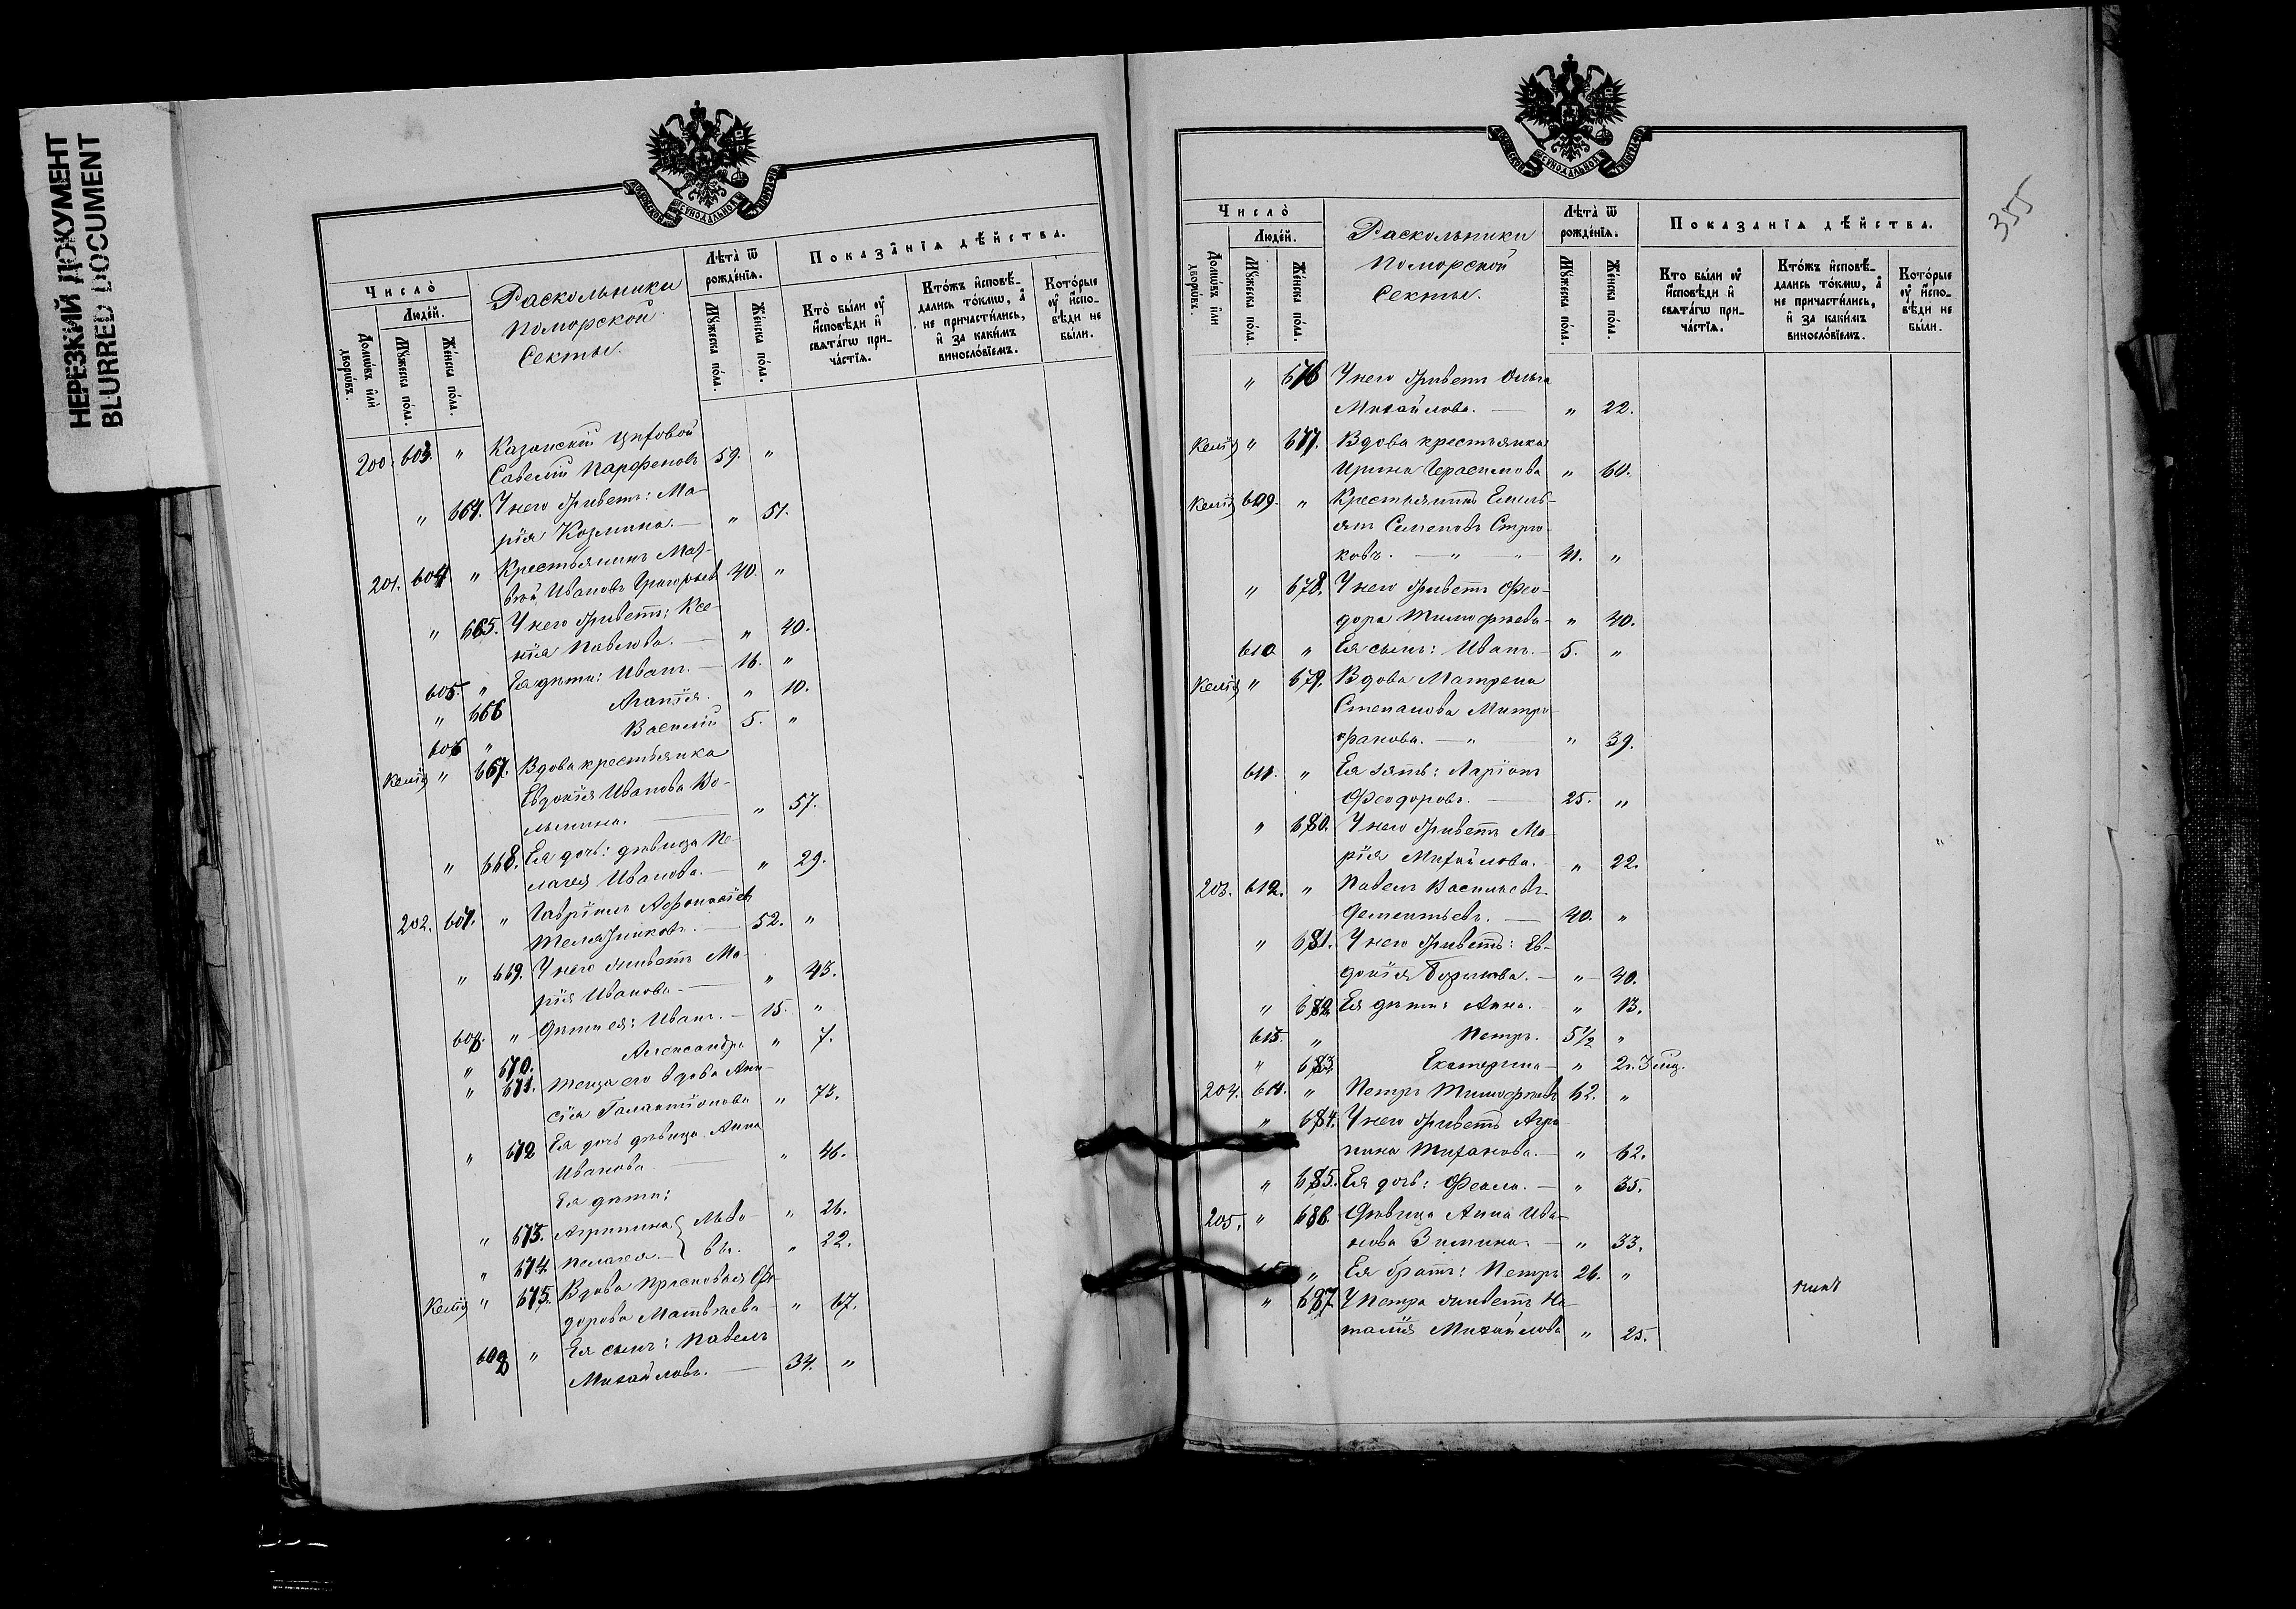 НЕРЕЗКИЙ ДОКУМЕНТ
BLURRED DOCUMENT
МОСКОВСКОЙ СѴНОДАЛЬНОЙ ТИПОГРАФІИ
Число̀
Людéй.
Домѡ́въ илѝ дворѡ́въ.
Мꙋ́жеска по́ла.
Же́нска по́ла.
Раскольники
Поморской
Секты.
Лѣта̀ ѿ рожде́нїѧ.
Мꙋ́жеска по́ла.
Же́нска по́ла.
Показа̂нїѧ дѣ́йства.
Кто̀ бы́ли ᲂу҆ и҆́сповѣди и҆ свѧта́гѡ прича́стїѧ.
Кто́жъ и҆сповѣ́дались то́кмѡ, а҆ не причасти́лись, и҆ за каки́мъ винослóвїемъ.
Кото́рые ᲂу҆ и҆́сповѣди не бы́ли.
200. 603. " Казанскій цеховой
Савелій Парфеновъ 59. "
" 664. У него живетъ: Ма-
рія Козмина. — " 51.
201. 604 " Крестьянинъ Мат-
вѣй Ивановъ Григорьевъ 40. "
" 665. У него живетъ: Ксе-
нія Павлова. — " 40.
605. " Ея дѣти: Иванъ. — 16. "
" 666 Агапія. " 10.
606 " Василій 5. "
Келія " 667. Вдова крестьянка
Евдокія Иванова
" 57.
" 668. Ея дочь: дѣвица Пе-
лагея Иванова. — " 29.
202. 607. " Гавріилъ Афонасіевъ
52. "
" 669. У него живетъ Ма-
рія Иванова — " 43.
608. " Дѣти ея: Иванъ. — 15. "
" 670. Александра " 7.
" 671. Теща его вдова Ани-
сія Галактіонова " 73.
" 672 Ея дочь дѣвица Анна
Иванова " 46.
Ея дѣти:
" 673. Агрипина } Льво- " 26.
" 674. Пелагея — } вы. " 22.
Келія " 675. Вдова Прасковья Фе-
дорова Матвѣева — " 67.
609 " Ея сынъ: Павелъ
Михайловъ. — 34. "
355
МОСКОВСКОЙ СѴНОДАЛЬНОЙ ТИПОГРАФІИ
Число̀
Людéй.
Домѡ́въ илѝ дворѡ́въ.
Мꙋ́жеска по́ла.
Же́нска по́ла.
Раскольники
Поморской
Секты.
Лѣта̀ ѿ рожде́нїѧ.
Мꙋ́жеска по́ла.
Же́нска по́ла.
Показа̂нїѧ дѣ́йства.
Кто̀ бы́ли ᲂу҆ и҆́сповѣди и҆ свѧта́гѡ прича́стїѧ.
Кто́жъ и҆сповѣ́дались то́кмѡ, а҆ не причасти́лись, и҆ за каки́мъ винослóвїемъ.
Кото́рые ᲂу҆ и҆́сповѣди не бы́ли.
" 676 У него живетъ Ольга
Михайлова. — " 22.
Келія " 677. Вдова крестьянка
Ирина Герасимова " 60.
Келія 609. " Крестьянинъ Емель-
янъ Семеновъ Стрю-
ковъ. — " — 41. "
" 678. У него живетъ Фео-
дора Тимофѣева — " 40.
610 " Ея сынъ: Иванъ. — 5. "
Келія " 679. Вдова Матрена
Степанова Митро-
фанова. — " " 39.
611. " Ея зять: Ларіонъ
Феодоровъ. — 25. "
" 680. У него живетъ Ма-
рія Михайлова. — " 22.
203. 612. " Павелъ Васильевъ
Дементьевъ. — 40. "
" 681. У него живетъ: Ев-
докія — " 40.
" 682 Ея дѣти: Анна. — " 13.
613. " Петръ. 5½ "
" 683. Екатерина — " 2 г. 3 мѣц.
204. 614. " Петръ Тимофѣевъ 62. "
" 684. У него живетъ Агри-
пина Тиханова. — " 62.
" 685. Ея дочь: Фекла. — " 35.
205. " 686. Дѣвица Анна Ива-
нова Зимина. — " 33.
" Ея братъ: Петръ 26. "
" 687 У Петра живетъ На-
талія Михайлова " 25.